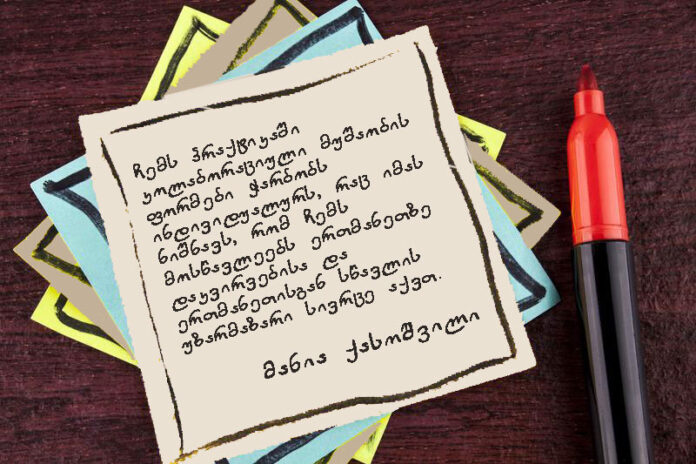 ჩემს პრაქტიკაში
კოლაბორაციული მუშაობის
ფორმები ჭარბობს
ინდივიდუალურს, რაც იმას
ნიშნავს, რომ ჩემს
მოსწავლეებს ერთმანეთზე
დაკვირვებისა და
ერთმანეთისგან სწავლის
უზარმაზარი სივრცე აქვთ.
მანია ქასოშვილი